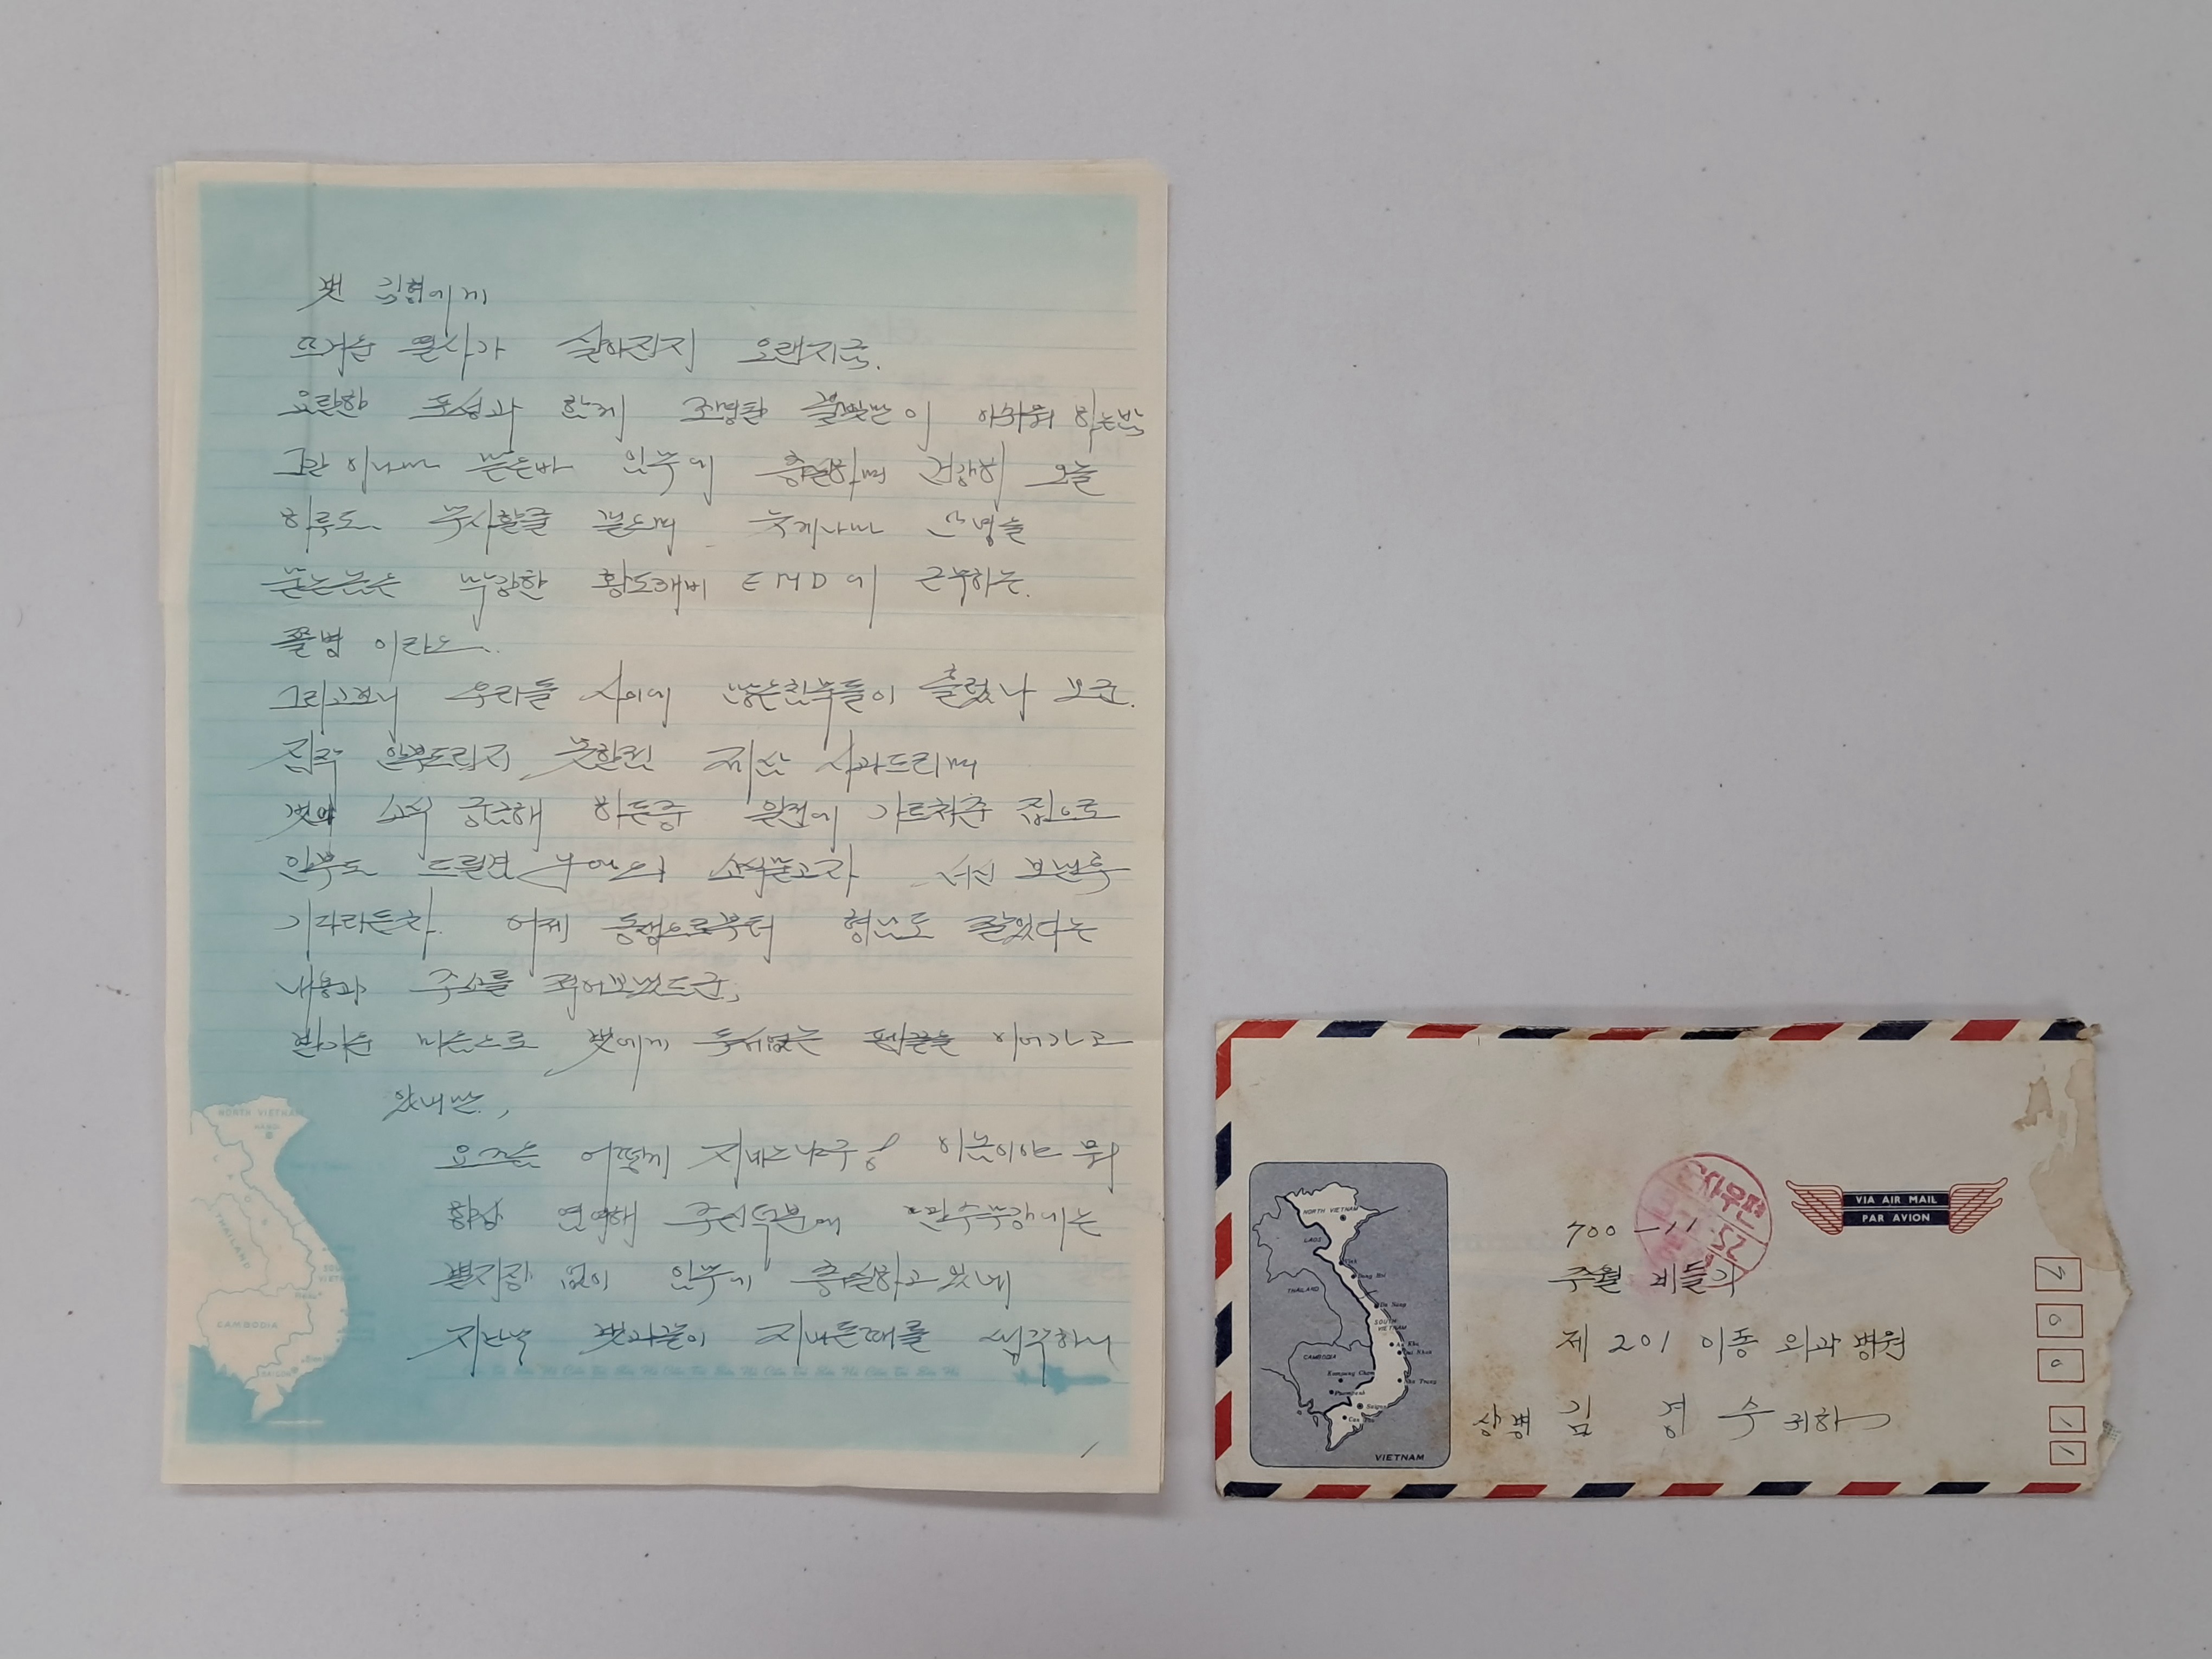 벗 김형에게
뜨거운 열사가 살아진지 오랜지금.
요란한 포성과 함께 조명탄 불빛만이 아쉬워 하는밤
그간 이나마 맡은바 임무에 충실하며 건강히 오늘
하루도 무사함을 빌으며 늦게나마
묻는놈은 막강한 황도깨비 EMD에 근무하는.
쫄병 이라오.
그리고보니 우리들 사이에 많은친구들이 흘렀나 보군.
진작 안부드리지 못한점 재삼 사과드리며
벗의 소식 궁금해 하든중 일전에 가르처준 집으로
안부도 드릴겸 소식묻고자 서신 보낸후
기다리든차. 어제 동생으로부터 형님도 잘있다는
내용과 주소를 적어보냈드군,
반가운 마음으로 벗에게 두서없는 펜글을 이어가고
있네만,
요즈음 어떻게 지내는나구? 이놈이야 뭐
항상 염려해 주신덕분에
별지장 없이 임무에 충실하고 있네
지난날 벗과같이 지내든때를 생각하니
NORTH VIETNAM
HANOI
THAILAND
CAMBODIA
SAIGON
VIA AIR MAIL
PAR AVION
700-11
주월 비둘기
제 201 이동 외과 병원
상병 김 경 수 귀하
7
0
0
1
1
NORTH VIETNAM
LAOS
Vinh
Dong Hoi
THAILAND
Da Nang
SOUTH VIETNAM
An Khe
Qui Nhon
CAMBODIA
Kompong Cham
Nha Trang
Phompenh
Saigon
VIETNAM